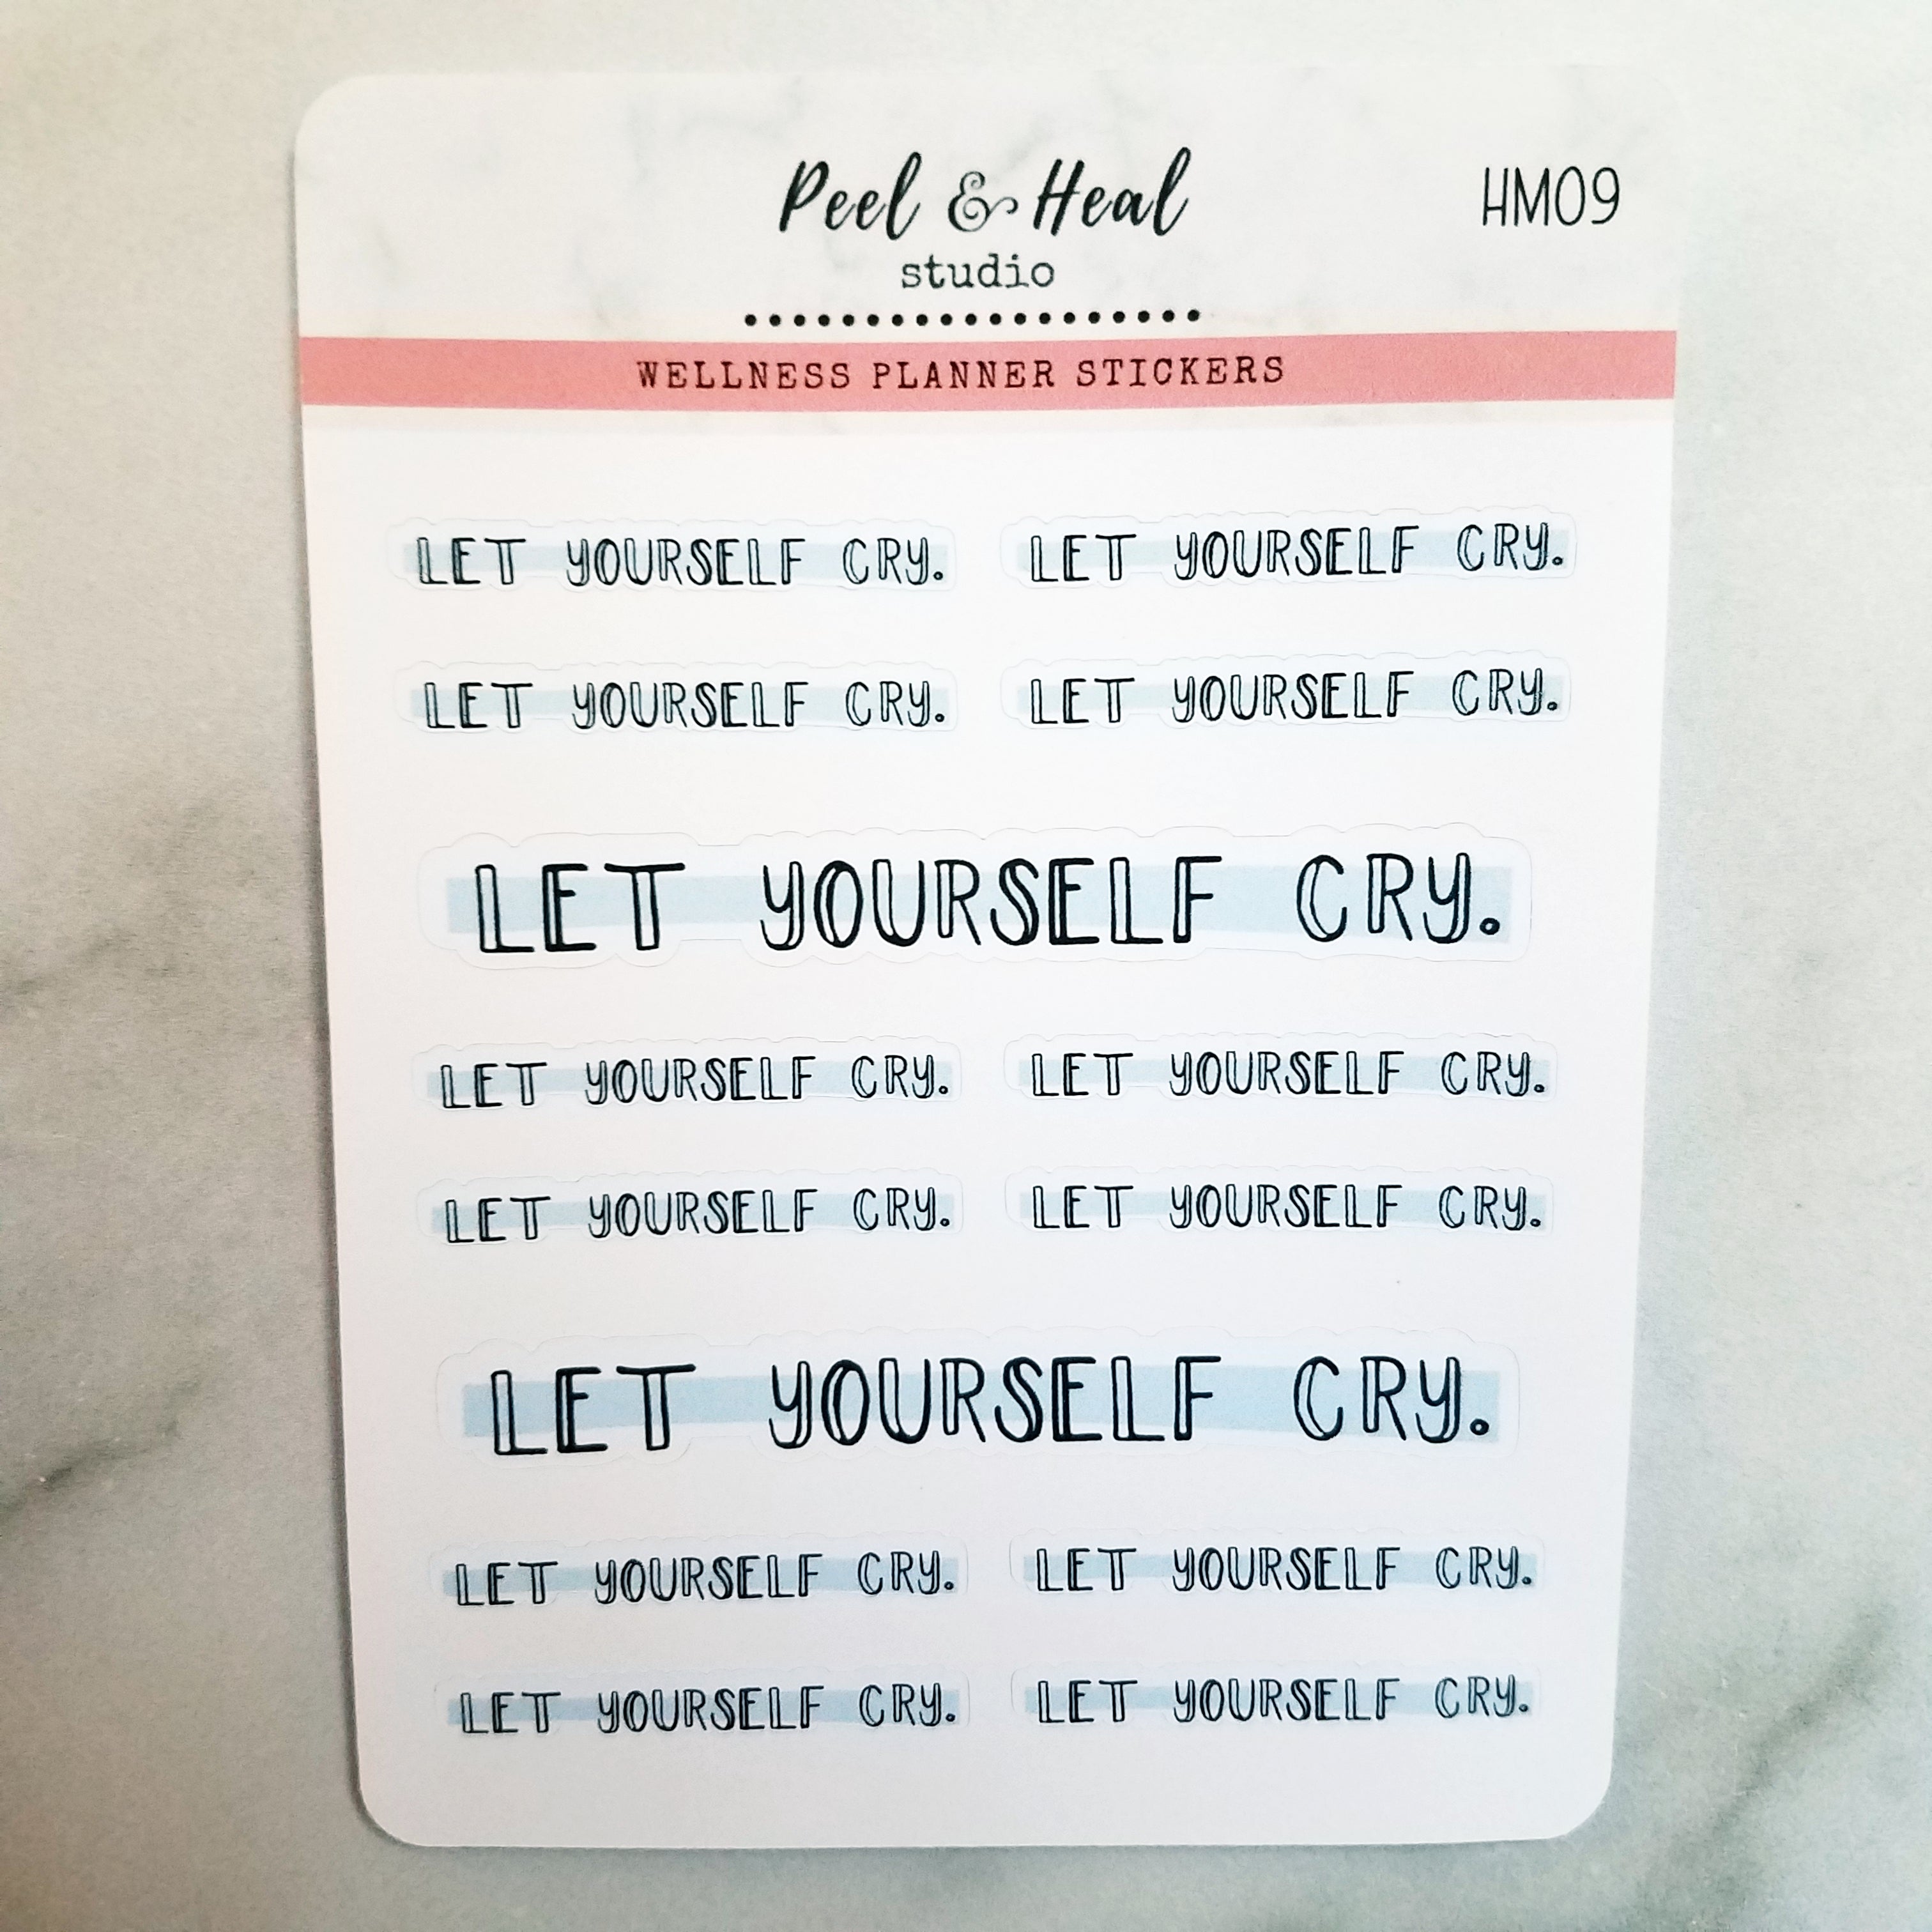 Peel & Heal
HM09
studio
WELLNESS PLANNER STICKERS
LET YOURSELF CRY. LET YOURSELF CRY.
LET YOURSELF CRY. LET YOURSELF CRY.
LET YOURSELF CRY.
LET YOURSELF CRY. LET YOURSELF CRY.
LET YOURSELF CRY. LET YOURSELF CRY.
LET YOURSELF CRY.
LET YOURSELF CRY. LET YOURSELF CRY.
LET YOURSELF CRY. LET YOURSELF CRY.